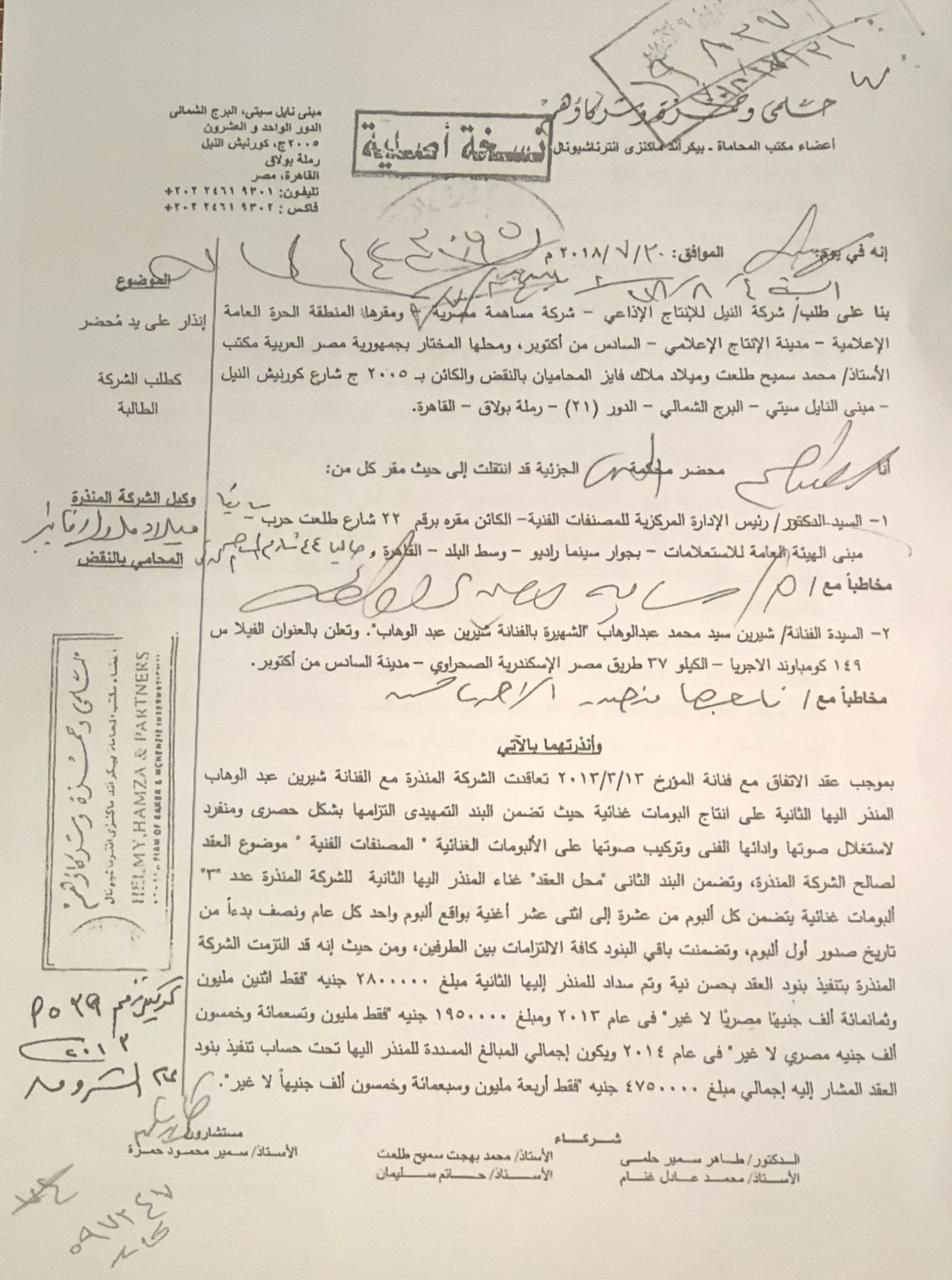 حلمى وحمزة وشركاؤهم
أعضاء مكتب المحاماة - بيكر أند ماكنزى انترناشيونال
نسخة أصلية
مبنى نايل سيتى، البرج الشمالى
الدور الواحد و العشرون
٢٠٠٥ ج، كورنيش النيل
رملة بولاق
القاهرة، مصر
تليفون: ٩٣٠١ ٢٤٦١ ٢٠٢+
فاكس: ٩٣٠٢ ٢٤٦١ ٢٠٢+
إنه في يوم: الموافق: ٢٠١٨/٧/٣٠ م
بنا على طلب/ شركة النيل للإنتاج الإذاعي – شركة مساهمة مصرية – ومقرها المنطقة الحرة العامة
الإعلامية – مدينة الإنتاج الإعلامي – السادس من أكتوبر، ومحلها المختار بجمهورية مصر العربية مكتب
الأستاذ/ محمد سميح طلعت وميلاد ملاك فايز المحاميان بالنقض والكائن بـ ٢٠٠٥ ج شارع كورنيش النيل
– مبنى النايل سيتي – البرج الشمالي – الدور (٢١) – رملة بولاق – القاهرة.
أنا محضر محكمة الجزئية قد انتقلت إلى حيث مقر كل من:
١- السيد الدكتور/ رئيس الإدارة المركزية للمصنفات الفنية– الكائن مقره برقم ٢٢ شارع طلعت حرب
مبنى الهيئة العامة للاستعلامات – بجوار سينما راديو – وسط البلد – القاهرة
مخاطباً مع /
٢- السيدة الفنانة/ شيرين سيد محمد عبدالوهاب "الشهيرة بالفنانة شيرين عبد الوهاب". وتعلن بالعنوان الفيلا س
١٤٩ كومباوند الاجريا – الكيلو ٣٧ طريق مصر الإسكندرية الصحراوي – مدينة السادس من أكتوبر.
مخاطباً مع /
وأنذرتهما بالآتي
بموجب عقد الاتفاق مع فنانة المؤرخ ٢٠١٣/٣/١٣ تعاقدت الشركة المنذرة مع الفنانة شيرين عبد الوهاب
المنذر اليها الثانية على انتاج البومات غنائية حيث تضمن البند التمهيدى التزامها بشكل حصرى ومنفرد
لاستغلال صوتها وادائها الفنى وتركيب صوتها على الألبومات الغنائية " المصنفات الفنية " موضوع العقد
لصالح الشركة المنذرة، وتضمن البند الثانى "محل العقد" غناء المنذر اليها الثانية للشركة المنذرة عدد "٣"
ألبومات غنائية يتضمن كل ألبوم من عشرة إلى اثنى عشر أغنية بواقع ألبوم واحد كل عام ونصف بدءاً من
تاريخ صدور أول ألبوم، وتضمنت باقي البنود كافة الالتزامات بين الطرفين، ومن حيث إنه قد التزمت الشركة
المنذرة بتنفيذ بنود العقد بحسن نية وتم سداد للمنذر إليها الثانية مبلغ ٢٨٠٠٠٠٠ جنيه "فقط اثنين مليون
وثمانمائة ألف جنيهًا مصريًا لا غير" فى عام ٢٠١٣ ومبلغ ١٩٥٠٠٠٠ جنيه "فقط مليون وتسعمائة وخمسون
ألف جنيه مصري لا غير" فى عام ٢٠١٤ ويكون إجمالي المبالغ المسددة للمنذر اليها تحت حساب تنفيذ بنود
العقد المشار إليه إجمالي مبلغ ٤٧٥٠٠٠٠ جنيه "فقط أربعة مليون وسبعمائة وخمسون ألف جنيهاً لا غير".
الموضوع
إنذار على يد مُحضر
كطلب الشركة
الطالبة
وكيل الشركة المنذرة
ميلاد ملاك فايز
المحامي بالنقض
حلمى وحمزة وشركاؤهم
أعضاء مكتب المحاماة بيكر أند ماكنزى انترناشيونال
HELMY, HAMZA & PARTNERS
MEMBER FIRM OF BAKER & MCKENZIE INTERNATIONAL
شركاء
الدكتور/ طاهر سمير حلمى
الأستاذ/ محمد عادل غنام
الأستاذ/ محمد بهجت سميح طلعت
الأستاذ/ حاتم سليمان
مستشارون
الأستاذ/ سمير محمود حمزة